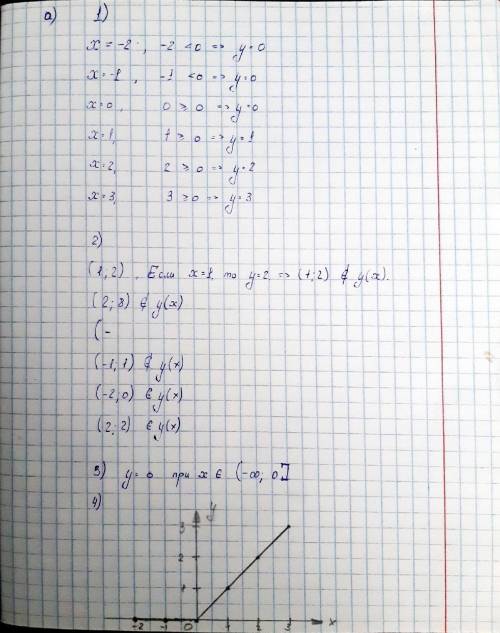 а) 1)
x = -2, -2 < 0 => y = 0
x = -1, -1 < 0 => y = 0
x = 0, 0 ≥ 0 => y = 0
x = 1, 1 ≥ 0 => y = 1
x = 2, 2 ≥ 0 => y = 2
x = 3, 3 ≥ 0 => y = 3
2)
(1, 2). Если x = 1, то y = 2 => (1; 2) ∉ y(x).
(2; 8) ∉ y(x)
(-
(-1; 1) ∉ y(x)
(-2, 0) ∈ y(x)
(2; 2) ∈ y(x)
3) y = 0 при x ∈ (-∞; 0]
4)
y
3
2
1
-2 -1 0 1 2 3 x